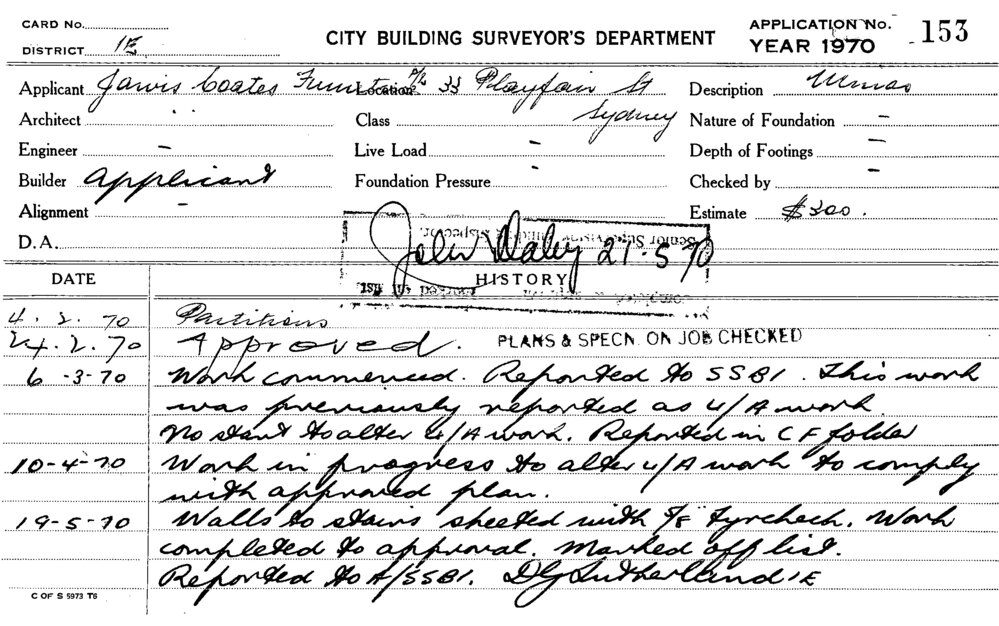 CARD No.
APPLICATION No. 153
DISTRICT 1E
CITY BUILDING SURVEYOR'S DEPARTMENT
YEAR 1970
Applicant Jarvis Coates Location 33 Playfair St Description
Architect - Class Sydney Nature of Foundation -
Engineer - Live Load - Depth of Footings -
Builder Applicant Foundation Pressure - Checked by -
Alignment - Estimate $300.
D.A.
Senior Building Inspector.
John Daley 21-5-70
DATE HISTORY
4.2.70 Partitions
24.2.70 Approved. PLANS & SPECN. ON JOB CHECKED
6-3-70 Work commenced. Reported to SSBI. This work
was previously reported as U/A work.
No start to alter U/A work. Reported in CF folder
10-4-70 Work in progress to alter U/A work to comply
with approved plan.
19-5-70 Walls to stairs sheeted with 5/8 Fyrcheck. Work
completed to approval. Marked off list.
Reported to A/SSBI. DG Sutherland 1E
C OF S 5973 T6